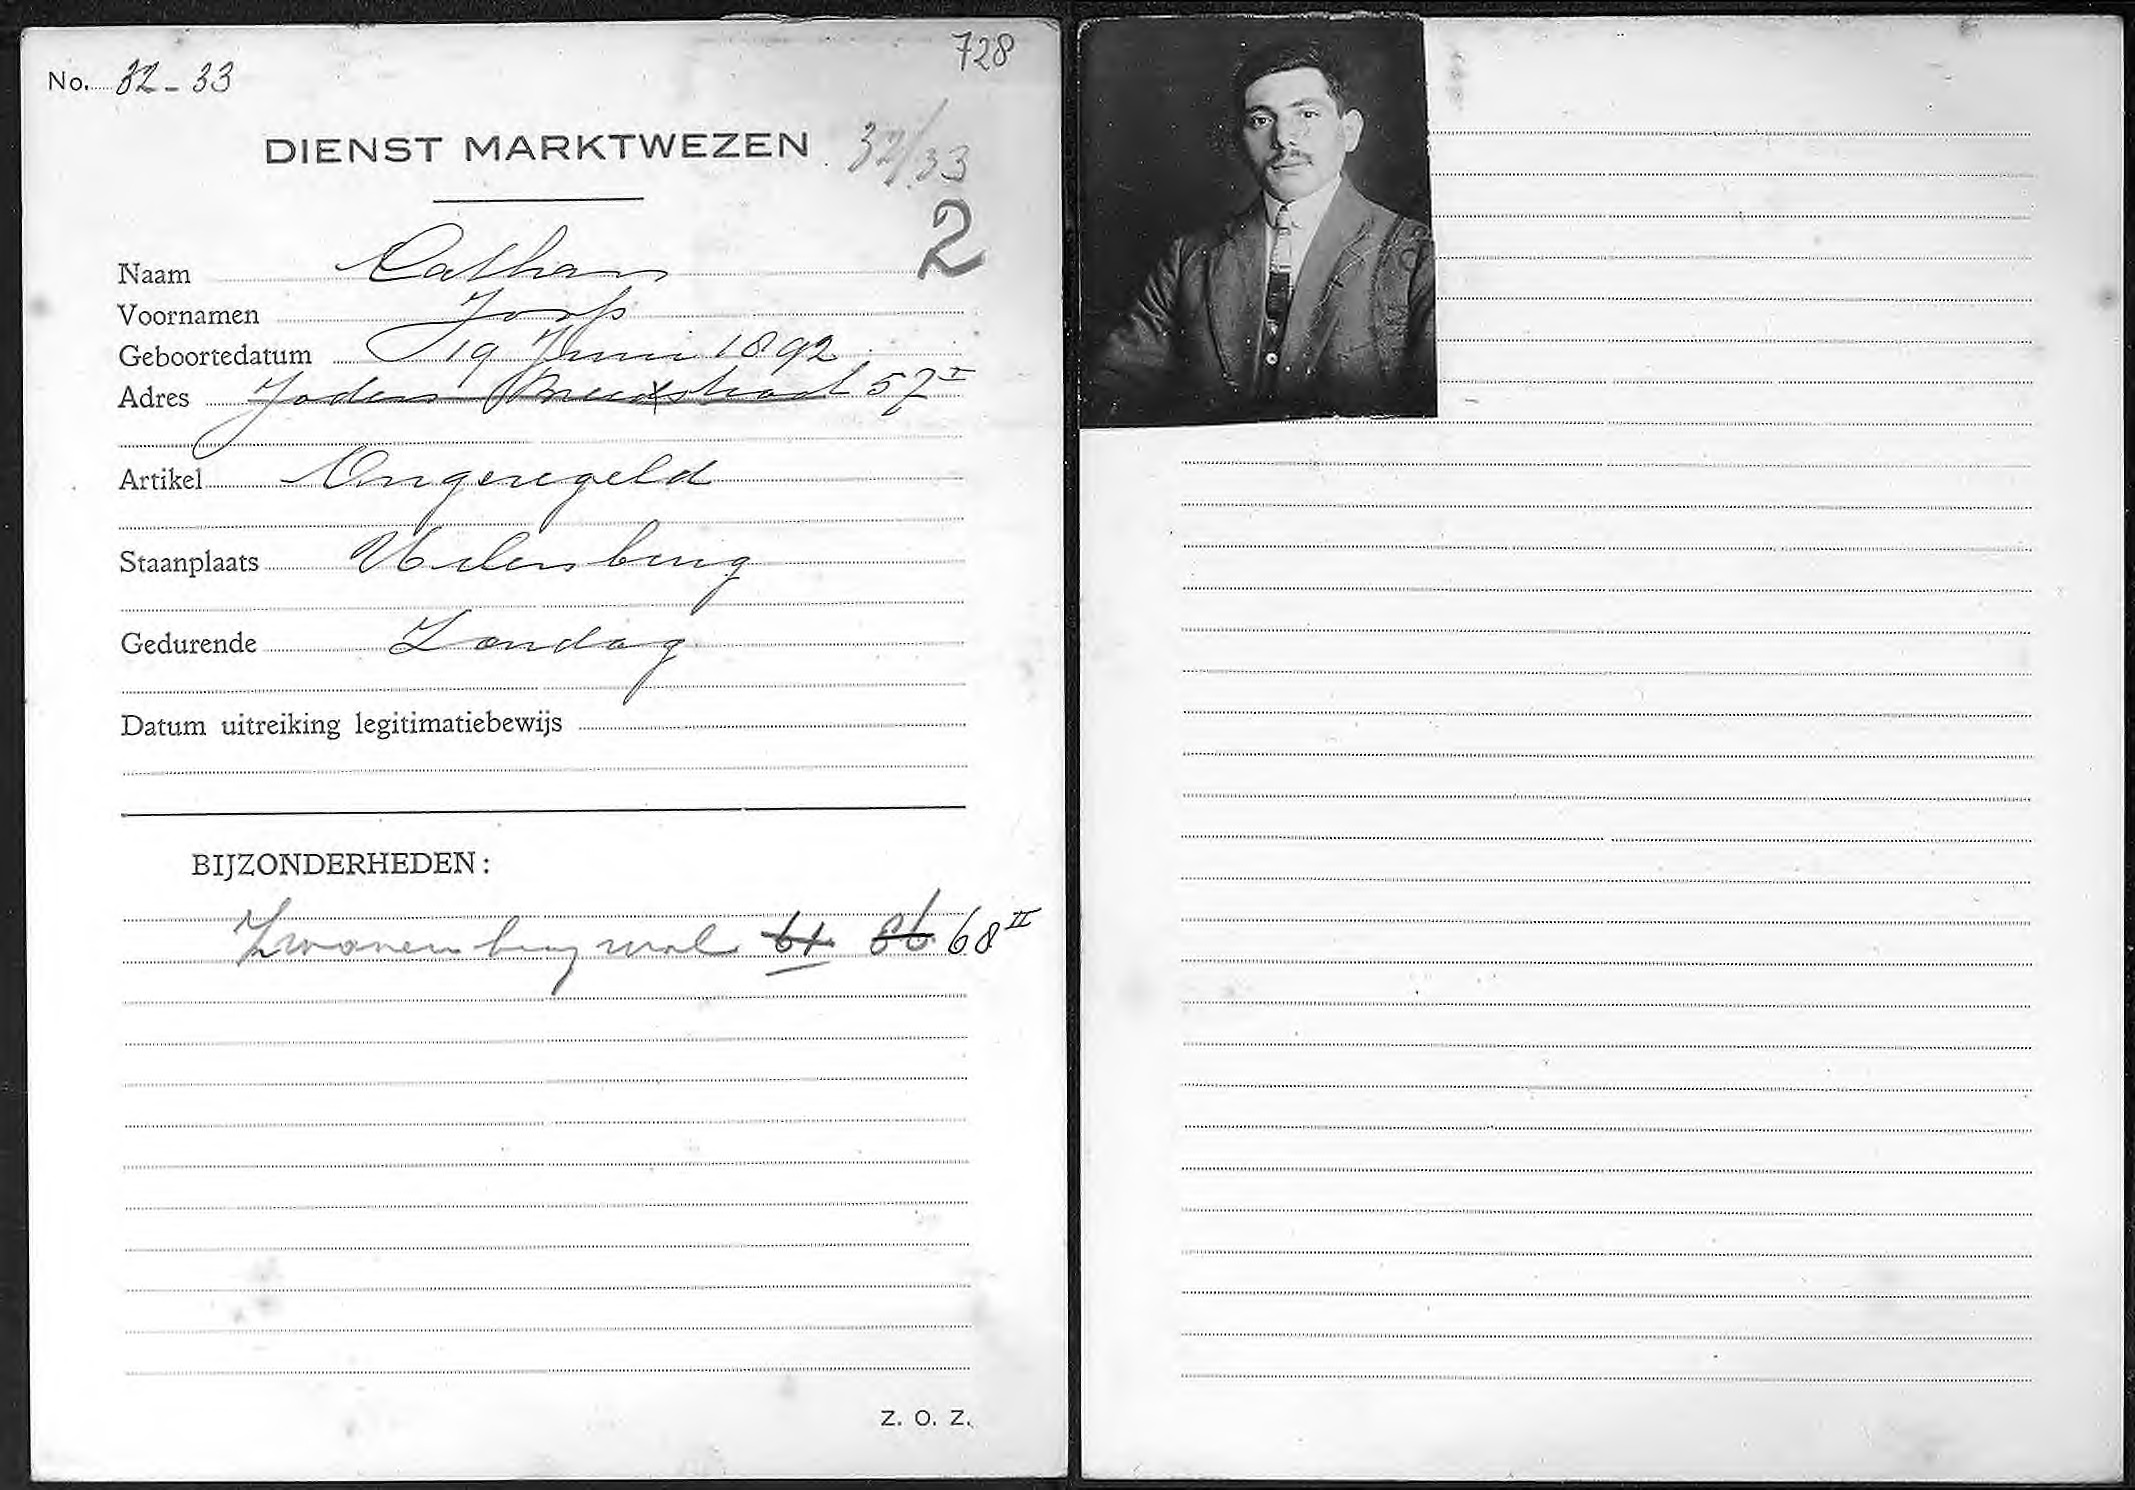 728
No. 32-33
DIENST MARKTWEZEN 32/33
2
Naam Calhan
Voornamen Joop
Geboortedatum 19 Juni 1892
Adres Joden Breestraat 57 I
Artikel Ongeregeld
Staanplaats Uilenburg
Gedurende Zondag
Datum uitreiking legitimatiebewijs
BIJZONDERHEDEN:
Zwanenburgwal 61 86 68 II
Z. O. Z.